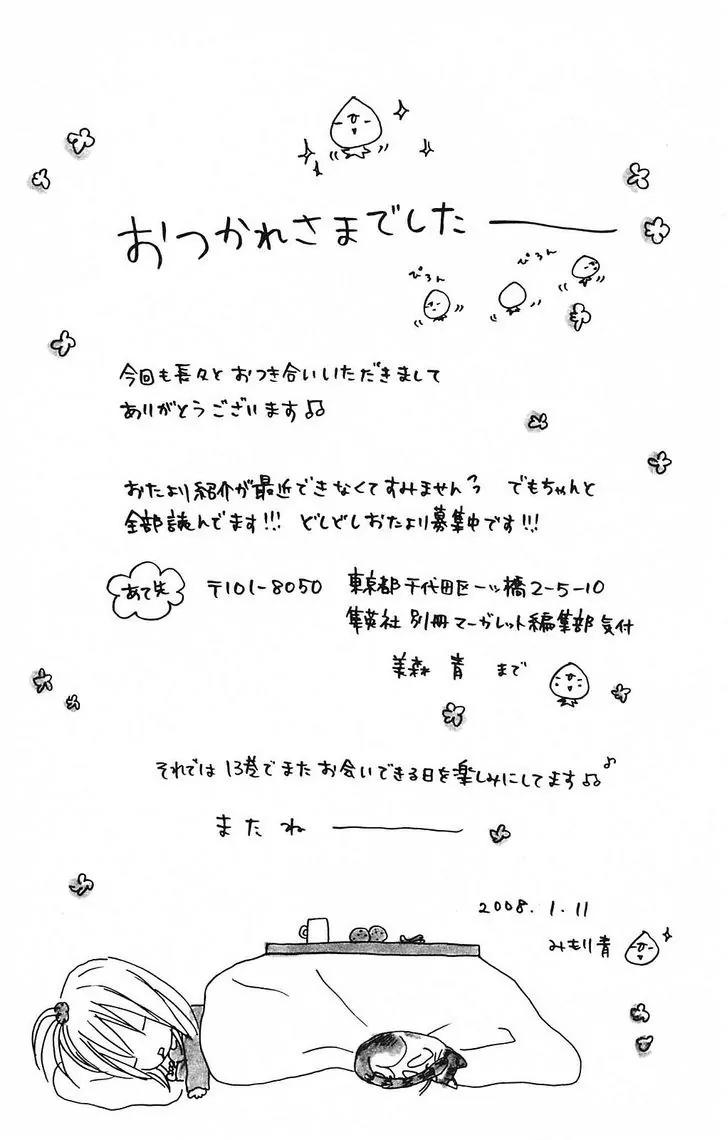 おつかれさまでした――
ぴろん
ぴろん
今回も長々とおつき合いいただきまして
ありがとうございます♫
おたより紹介が最近できなくてすみません でもちゃんと
全部読んでます!!! どしどしおたより募集中です!!!
あて先 〒101-8050 東京都千代田区一ツ橋2-5-10
集英社 別冊マーガレット編集部気付
美森 青 まで
それでは13巻でまたお会いできる日を楽しみにしてます♫♪
またね――
2008.1.11
みもり青